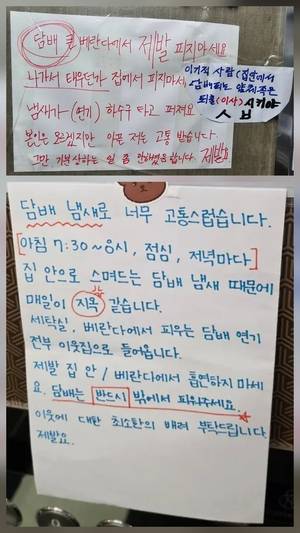 담배 를 베란다에서 제발 피지마세요
나가서 태우던가 집에서 피지마셔,
냄새가 (연기) 하수구 타고 퍼져요
본인은 좋겠지만 아픈 저는 고통 받습니다.
그만 기분상하는 일 좀 안하셨음합니다. 제발요
이기적 사람 (집안에서
담배피는
(이사) 시키야
담배 냄새로 너무 고통스럽습니다.
[아침 7:30 ~ 8시, 점심, 저녁마다]
집 안으로 스며드는 담배 냄새 때문에
매일이 지옥 같습니다.
세탁실, 베란다에서 피우는 담배 연기
전부 이웃집으로 들어옵니다.
제발 집 안 / 베란다에서 흡연하지 마세
요. 담배는 반드시 밖에서 피워주세요.
이웃에 대한 최소한의 배려 부탁드립니다.
제발요.